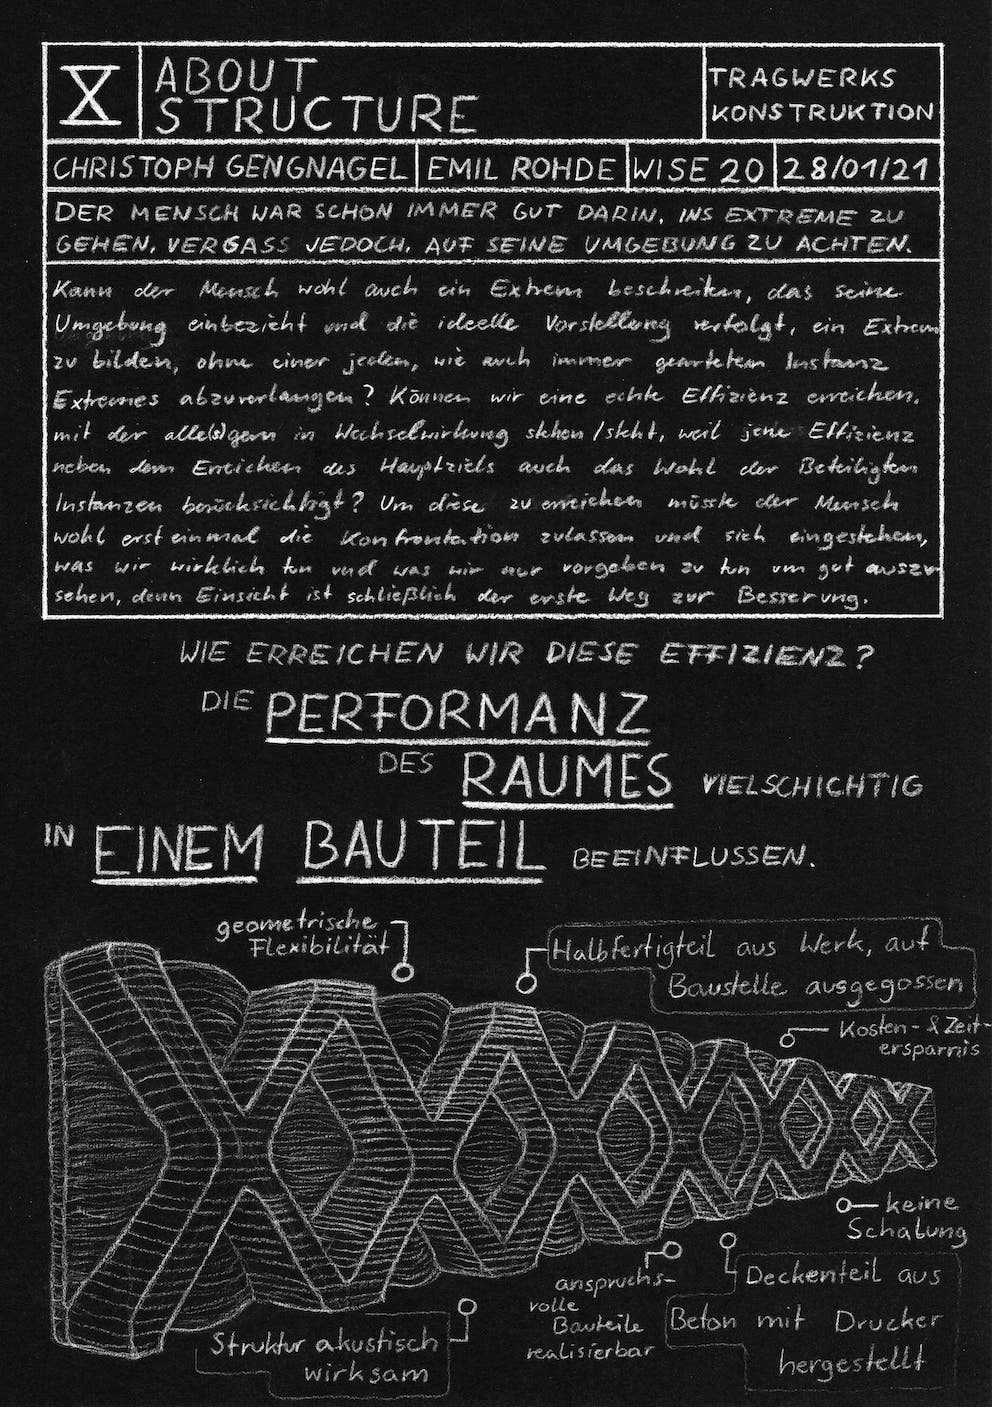 X
ABOUT
STRUCTURE
TRAGWERKS
KONSTRUKTION
CHRISTOPH GENGNAGEL
EMIL ROHDE
WISE 20
28/01/21
DER MENSCH WAR SCHON IMMER GUT DARIN, INS EXTREME ZU
GEHEN, VERGASS JEDOCH, AUF SEINE UMGEBUNG ZU ACHTEN.
Kann der Mensch wohl auch ein Extrem beschreiben, das seine
Umgebung einbezieht und die ideelle Vorstellung verfolgt, ein Extrem
zu bilden, ohne einer jeden, wie auch immer gearteten Instanz
Extremes abzuverlangen? Können wir eine echte Effizienz erreichen,
mit der alle(s) gern in Wechselwirkung stehen/steht, weil jene Effizienz
neben dem Erreichen des Hauptziels auch das Wohl der Beteiligten
Instanzen berücksichtigt? Um diese zu erreichen müsste der Mensch
wohl erst einmal die Konfrontation zulassen und sich eingestehen,
was wir wirklich tun und was wir nur vorgeben zu tun um gut auszu
sehen, denn Einsicht ist schließlich der erste Weg zur Besserung.
WIE ERREICHEN WIR DIESE EFFIZIENZ?
DIE PERFORMANZ
DES RAUMES VIELSCHICHTIG
IN EINEM BAUTEIL BEEINFLUSSEN.
geometrische
Flexibilität
Halbfertigteil aus Werk, auf
Baustelle ausgegossen
Kosten- & Zeit-
ersparnis
keine
Schalung
anspruchs-
volle
Bauteile
realisierbar
Deckenteil aus
Beton mit Drucker
hergestellt
Struktur akustisch
wirksam